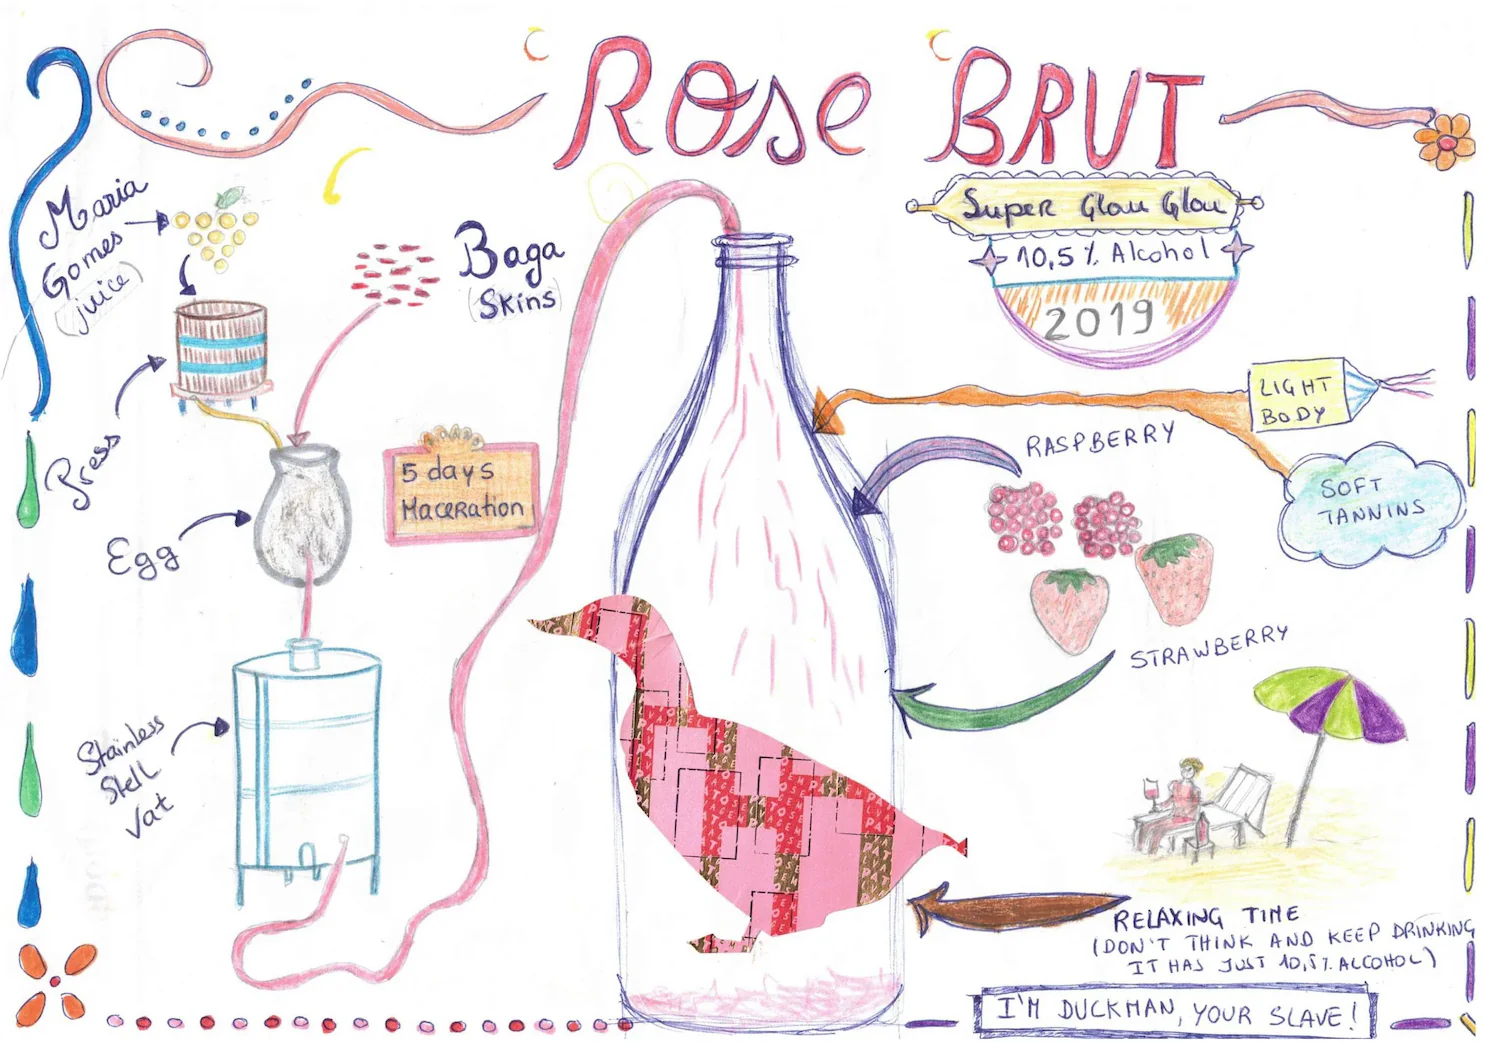 Rose BRUT
Super Glou Glou
10,5 % Alcohol
2019
Maria
Gomes
(juice)
Baga
(Skins)
Press
5 days
Maceration
Egg
Stainless
Stell
Vat
LIGHT
BODY
SOFT
TANNINS
RASPBERRY
STRAWBERRY
RELAXING TIME
(DON'T THINK AND KEEP DRINKING
IT HAS JUST 10,5%.ALCOHOL)
I'M DUCKMAN, YOUR SLAVE!